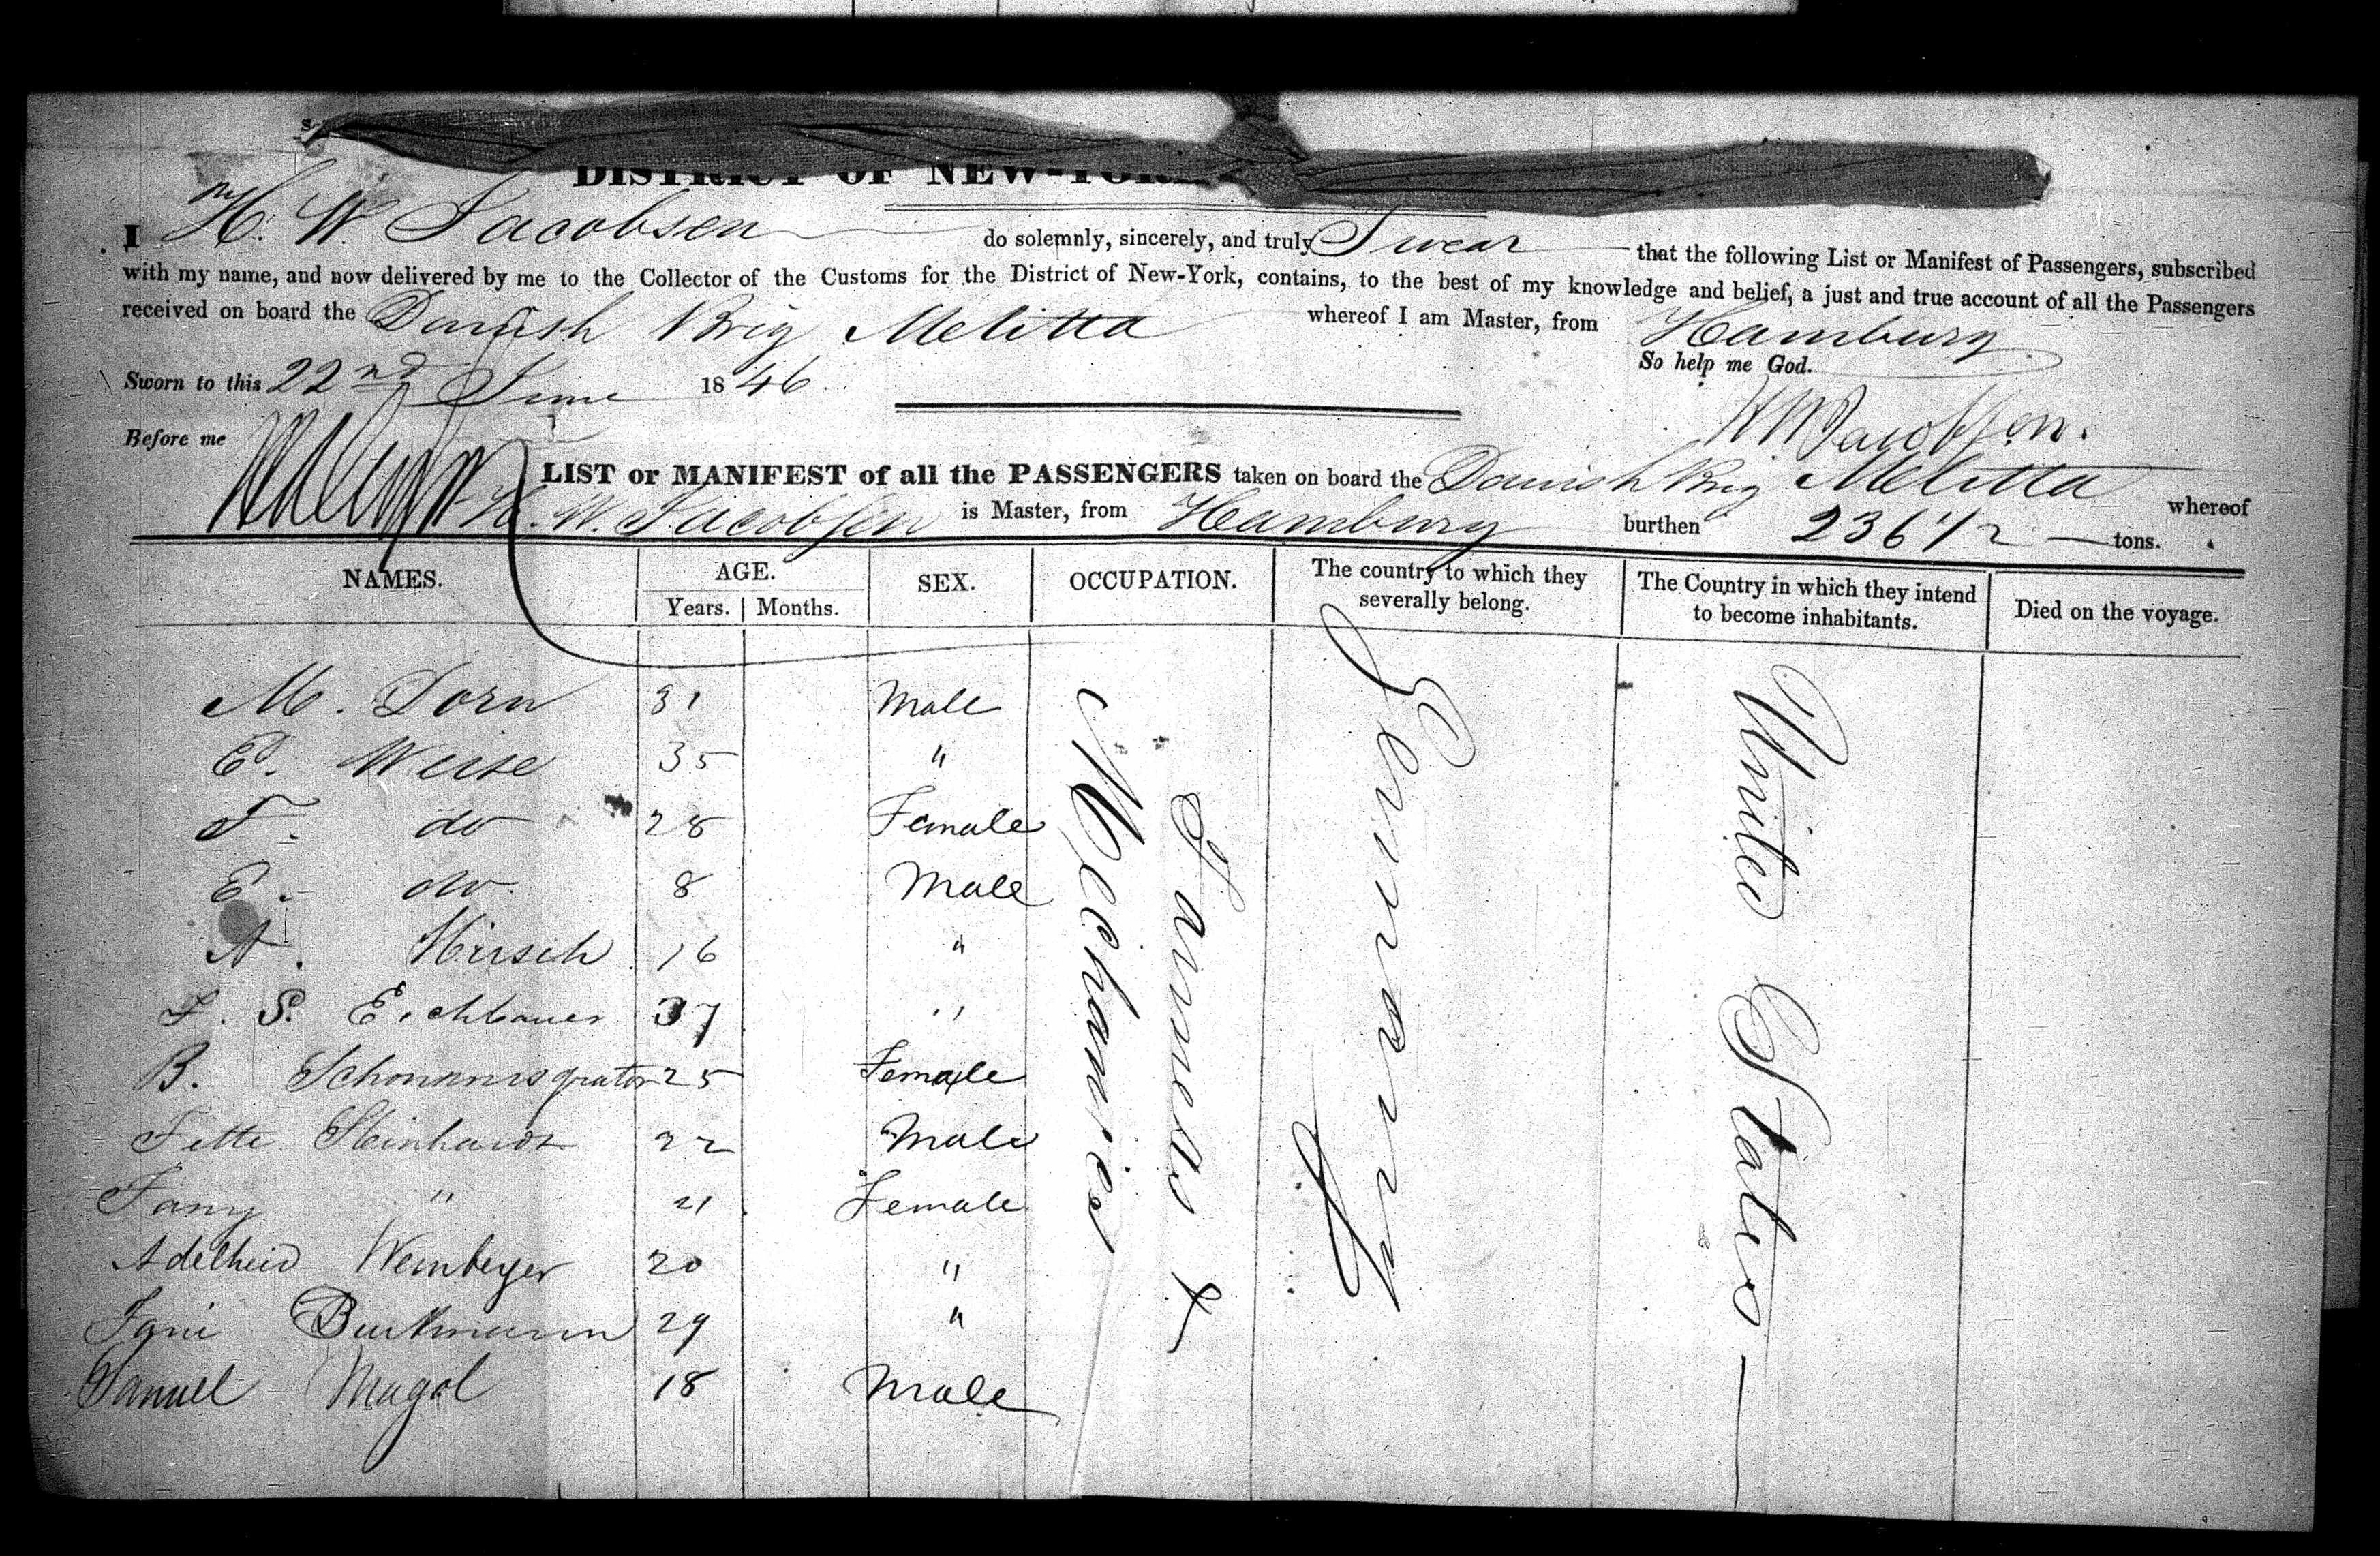 DISTRICT OF NEW-YORK
I H. W. Jacobsen do solemnly, sincerely, and truly Swear that the following List or Manifest of Passengers, subscribed
with my name, and now delivered by me to the Collector of the Customs for the District of New-York, contains, to the best of my knowledge and belief, a just and true account of all the Passengers
received on board the Danish Brig Melitta whereof I am Master, from Hamburg
So help me God.
Sworn to this 22nd June 1846.
H W Jacobsen.
Before me
LIST or MANIFEST of all the PASSENGERS taken on board the Danish Brig Melitta whereof
H. W. Jacobsen is Master, from Hamburg burthen 236 1/2 tons.
NAMES. AGE. SEX. OCCUPATION. The country to which they severally belong. The Country in which they intend to become inhabitants. Died on the voyage.
Years. Months.
M. Dorn 31 Male
E. Weise 35 "
F. do 28 Female
E. do 8 Male
A. Hirsch 16 "
S. Eichbauer 37 "
B. 25 Female
Fette Steinhardt 22 Male
Fany " 21 Female
Adelheid Wemberger 20 "
Fani 29 "
Samuel Magol 18 Male
Farmers &
Mechanics
Germany
United States